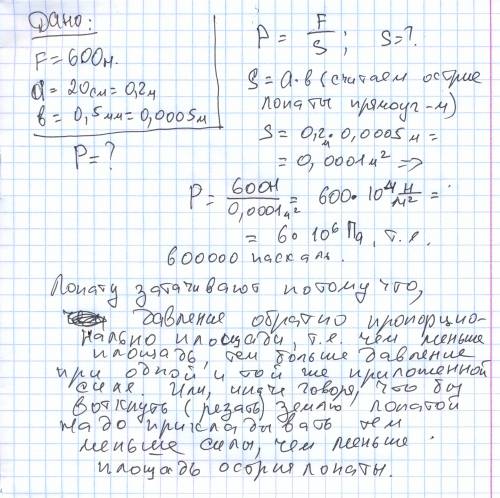 Дано:
F = 600 н.
a = 20 см = 0,2 м
в = 0,5 мм = 0,0005 м
P = ?
P = F/S ; S = ?.
S = a · в (считаем острие
лопаты прямоуг-м)
S = 0,2 м · 0,0005 м =
= 0,0001 м² =>
P = 600Н/0,0001 м² = 600 · 10⁴ Н/м² =
= 6 · 10⁶ Па, т.е.
600000 паскаль.
Лопату затачивают потому что,
давление обратно пропорцио-
нально площади, т.е. чем меньше
площадь, тем больше давление
при одной и той же приложенной
силе. Или, иначе говоря, что бы
воткнуть (резать) землю лопатой
надо прикладывать тем
меньше силы, чем меньше
площадь острия лопаты.